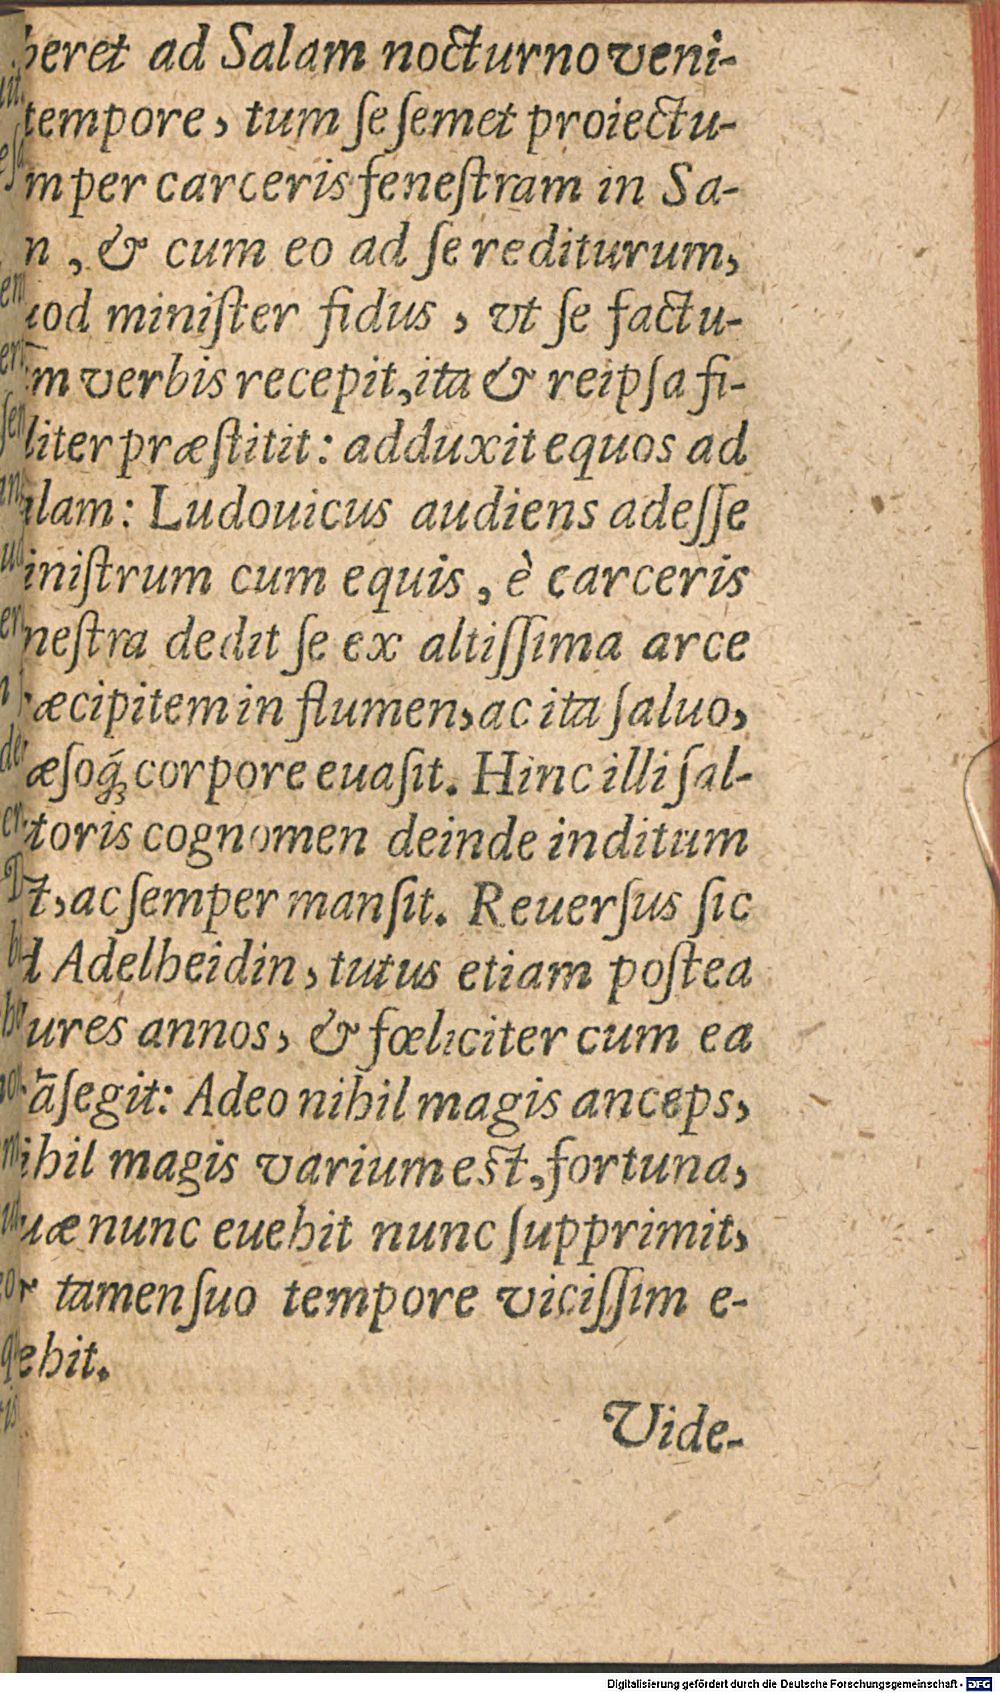 beret ad Salam nocturno veni-
tempore, tum ſe ſemet proiectu-
m per carceris feneſtram in Sa-
m, & cum eo ad ſe rediturum,
uod miniſter fidus, vt ſe factu-
m verbis recepit, ita & reipſa fi-
liter præſtitit: adduxit equos ad
alam: Ludouicus audiens adeſſe
iniſtrum cum equis, è carceris
neſtra dedit ſe ex altiſſima arce
æcipitem in flumen, ac ita ſaluo,
æſoq́ꝫ corpore euaſit. Hinc illi ſal-
toris cognomen deinde inditum
t, ac ſemper manſit. Reuerſus ſic
d Adelheidin, tutus etiam poſtea
ures annos, & fœliciter cum ea
ãſegit: Adeo nihil magis anceps,
ihil magis varium eſt, fortuna,
uæ nunc euehit nunc ſupprimit,
r tamen ſuo tempore viciſſim e-
ehit.
Vide-
Digitalisierung gefördert durch die Deutsche Forschungsgemeinschaft - DFG